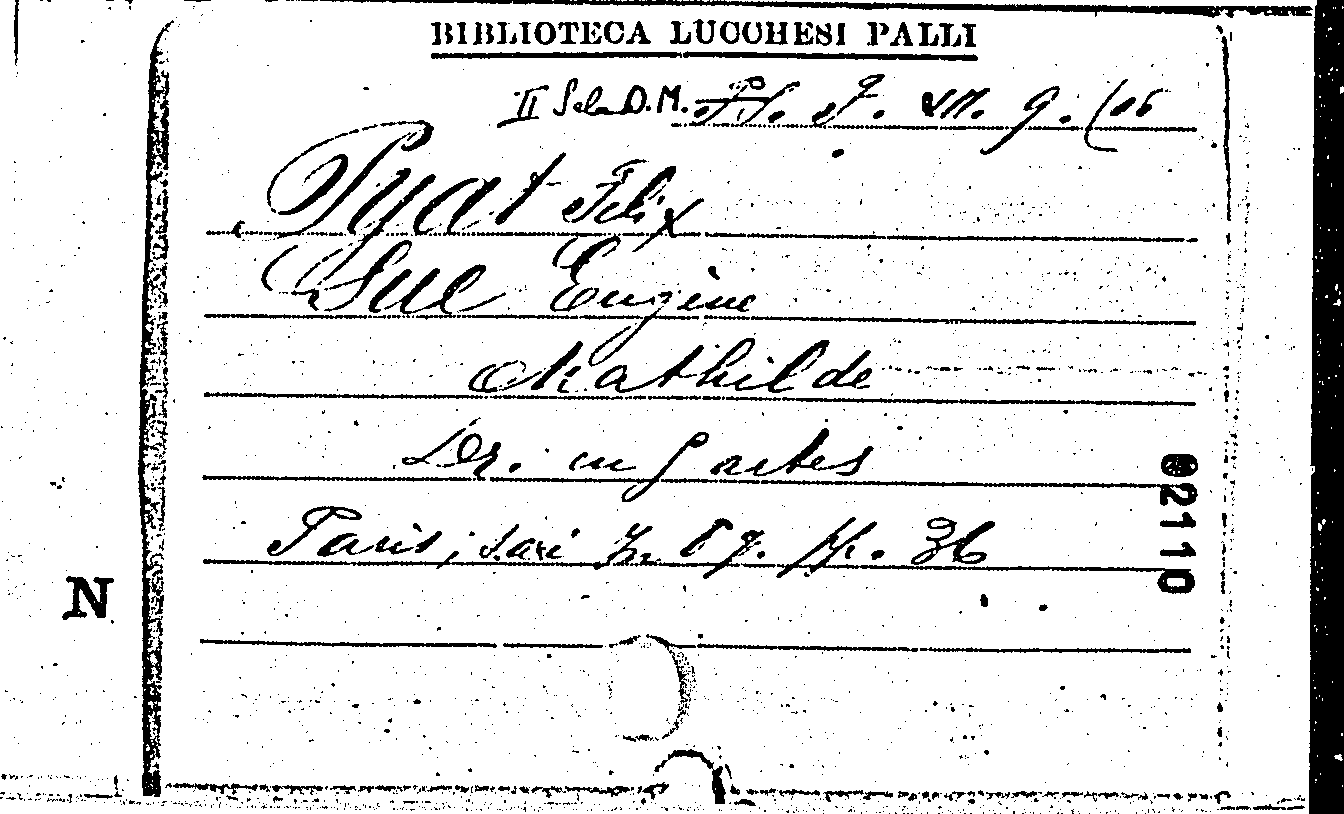 BIBLIOTECA LUCCHESI PALLI
II Sala D.M.
Pyat Felix
Sue Eugène
Mathilde
Dr. in 5 actes
Paris; s.a.
36
02110
N